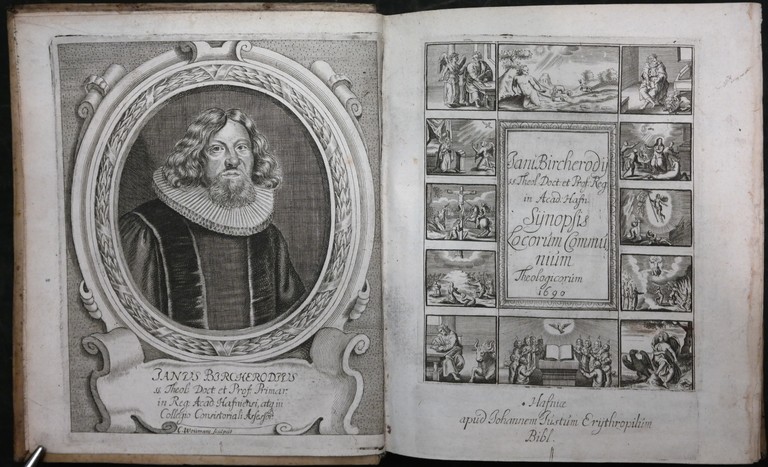 IANUS BIRCHERODIUS
ss. Theol. Doct. et Prof. Primar.
in Reg. Acad. Hafniensi, atq. in
Collegio Consistoriali Assessor.
sculpsit
Iani Bircherodij
ss Theol. Doct. et Prof. Reg.
in Acad. Hafn.
Synopsis
Locorum Commu
nium
Theologicorum
1690
Hafniæ
apud Johannem Justum Erythropilum
Bibl.